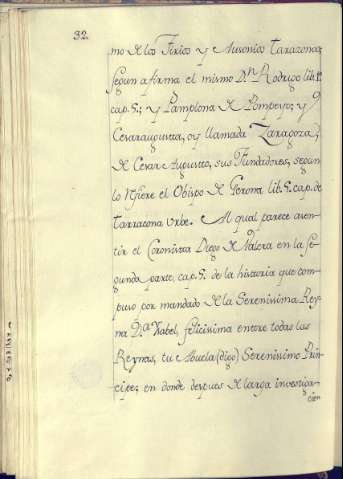 32.
mo de los Tirios y Ausonios Tarazona,
segun afirma el mismo D.n Rodrigo lib. 1.
cap. 5; y Pamplona de Pompeyo; y
Cesaraugusta, oy llamada Zaragoza,
de Cesar Augusto, sus Fundadores, segun
lo refiere el Obispo de Gerona lib. 5. cap. de
Tarracona Urbe. Al qual parece asen-
tir el Coronista Diego de Valera en la se-
gunda parte, cap. 5. de la historia que com-
puso por mandado de la Serenisima Rey-
na D.a Ysabel, felicisima entre todas las
Reynas, tu Abuela (digo) Serenisimo Prin-
cipe; en donde despues de larga investiga-
cion